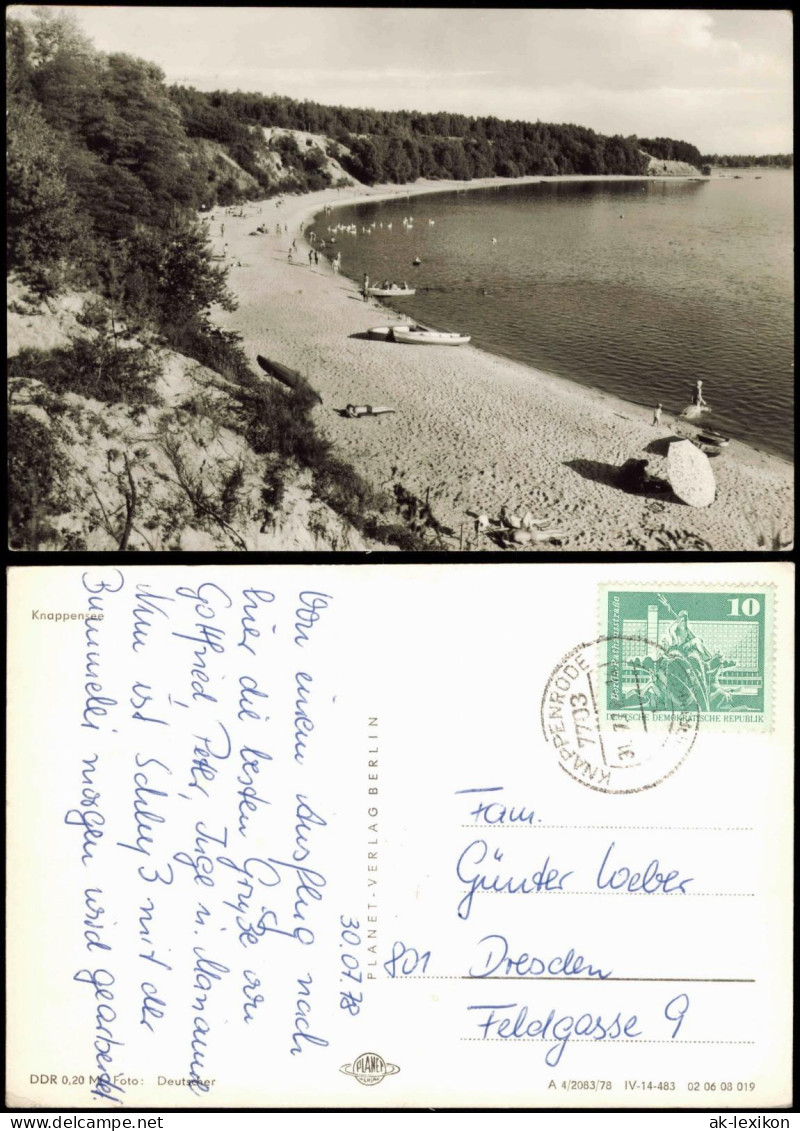 Knappensee
30.07.78
Von einem Ausflug nach
hier die besten Grüße an
Gottfried, Peter, Inge u. Marianne
Nun ist Schluß mit der
Bummelei morgen wird gearbeitet.
PLANET-VERLAG BERLIN
10
Berlin-Rathausstraße
DEUTSCHE DEMOKRATISCHE REPUBLIK
KNAPPENRODE
7703
Fam.
Günter Weber
801 Dresden
Feldgasse 9
PLANET
DDR 0,20 M Foto: Deutscher
A 4/2083/78 IV-14-483 02 06 08 019
delcampe.net
ak-lexikon